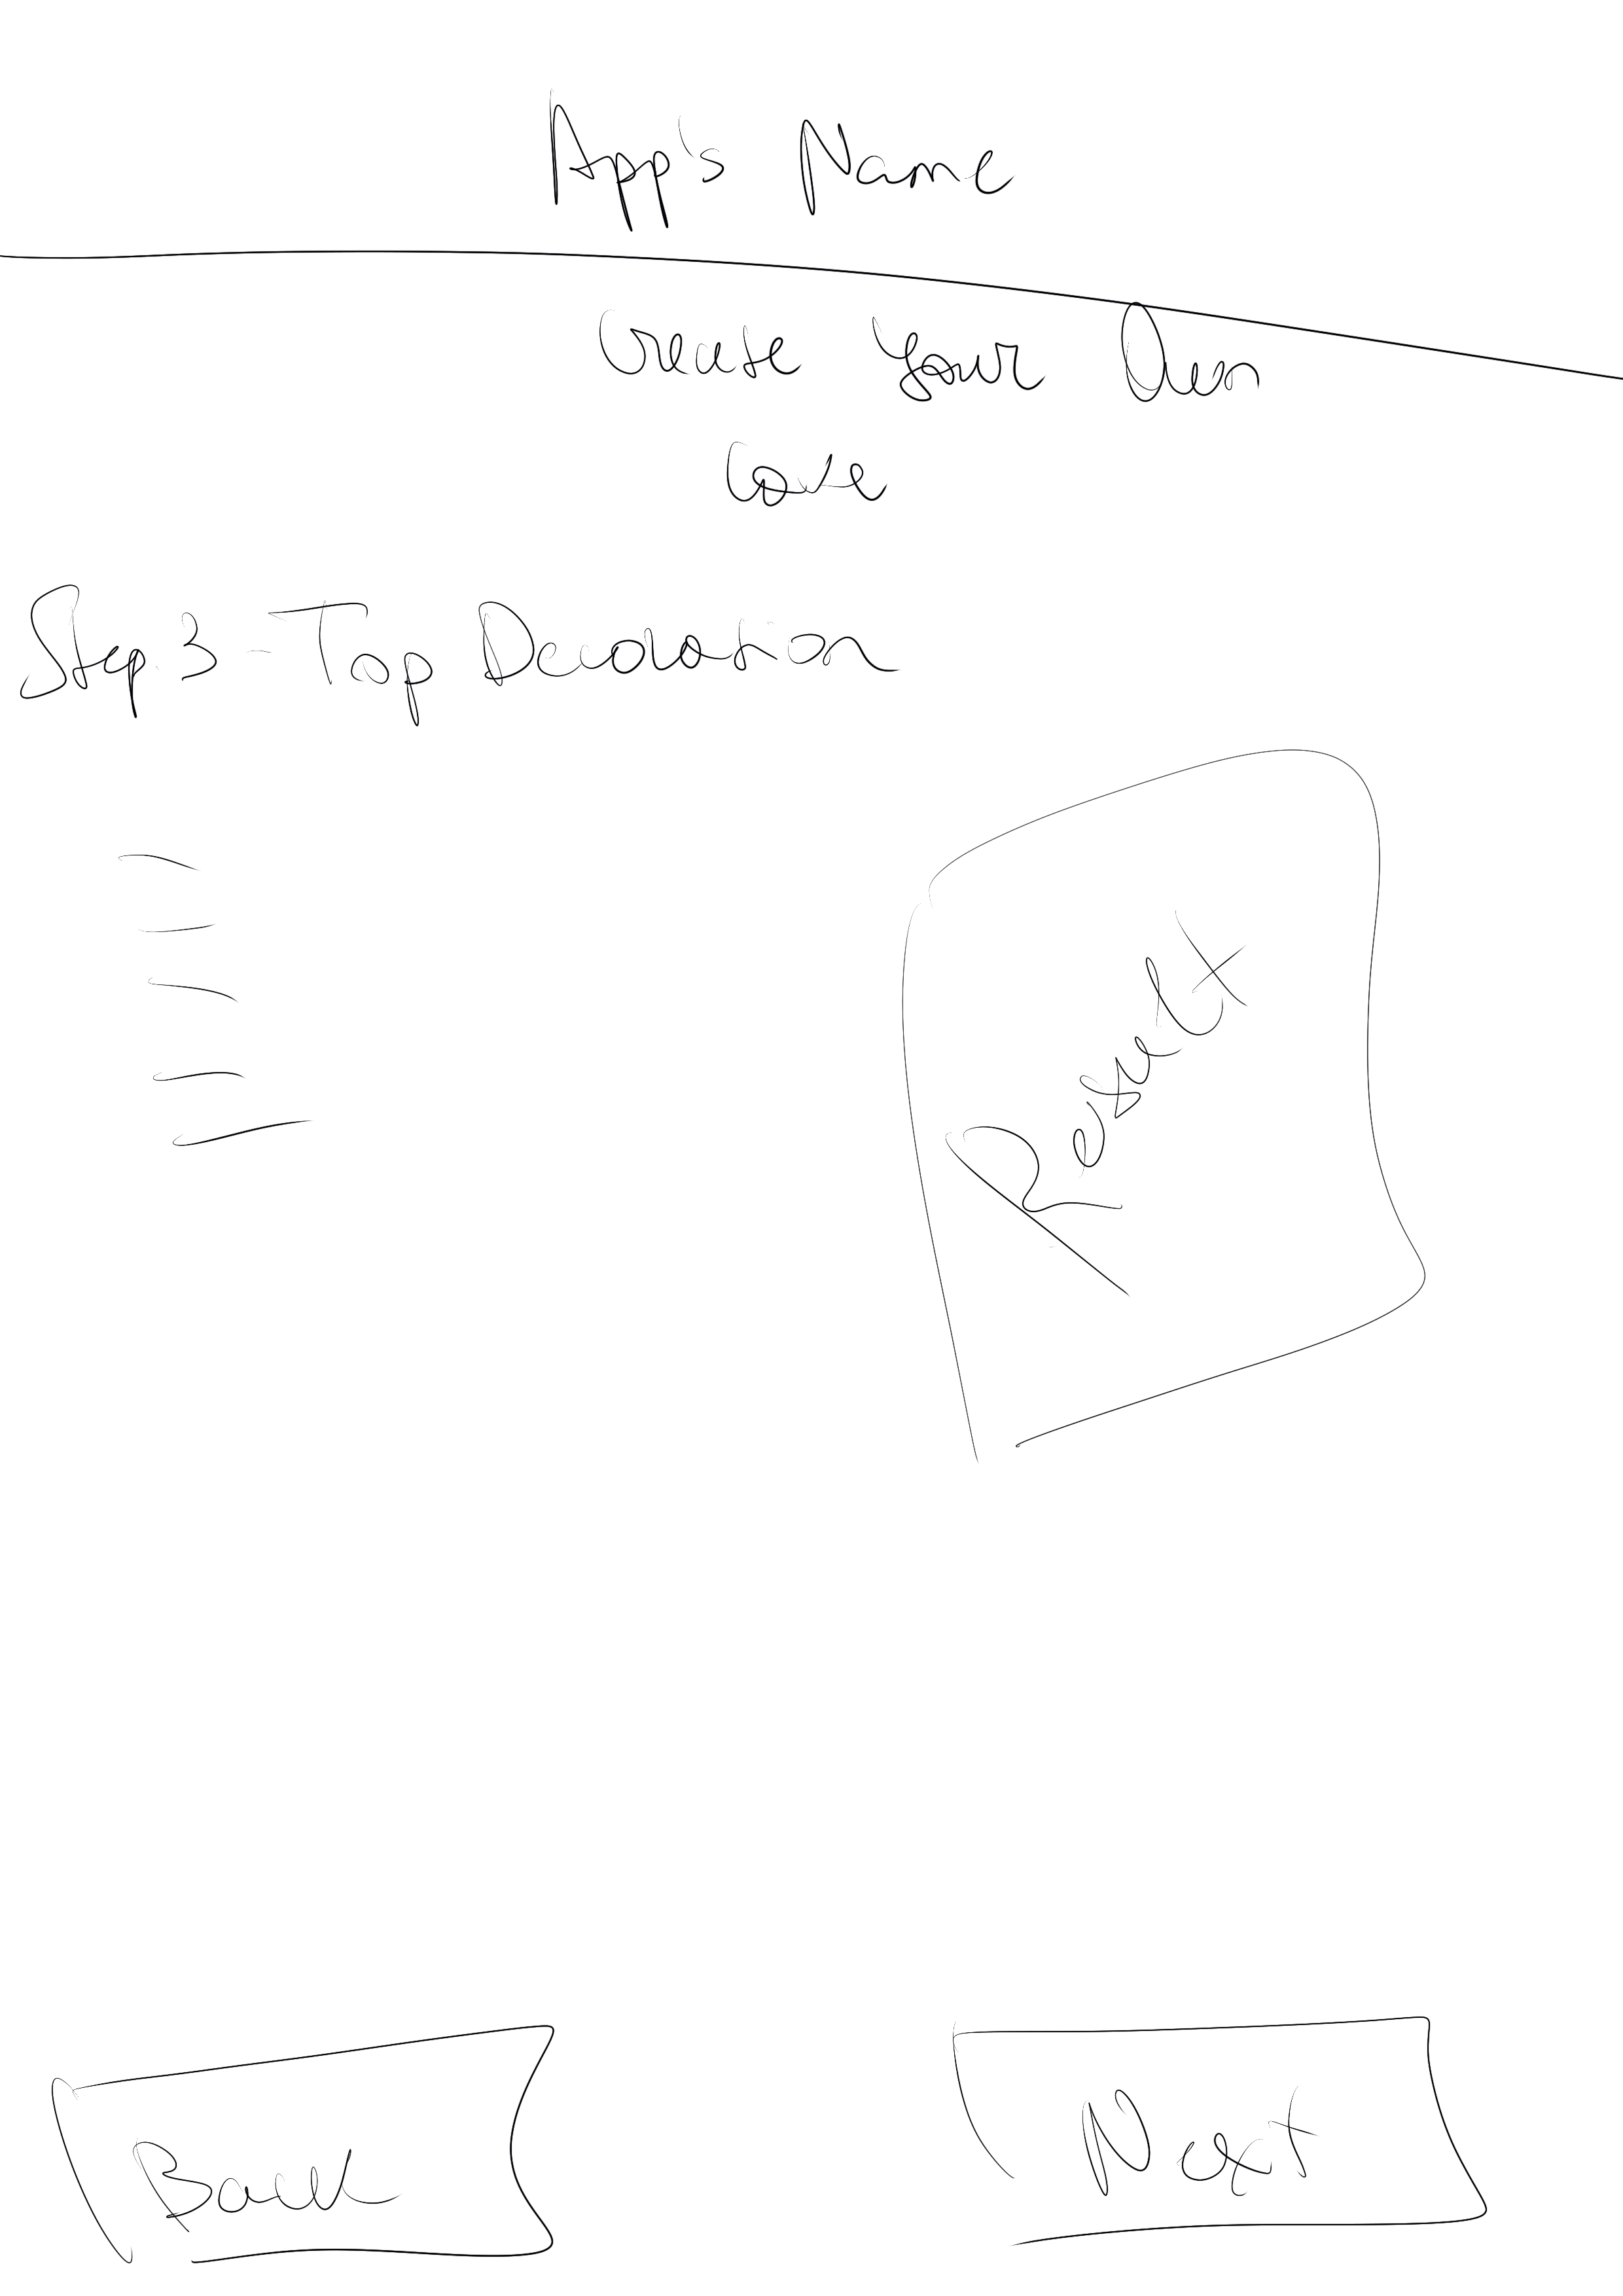 App's Name
Create Your Own
Cake
Step 3 - Top Decoration
Result
Back
Next